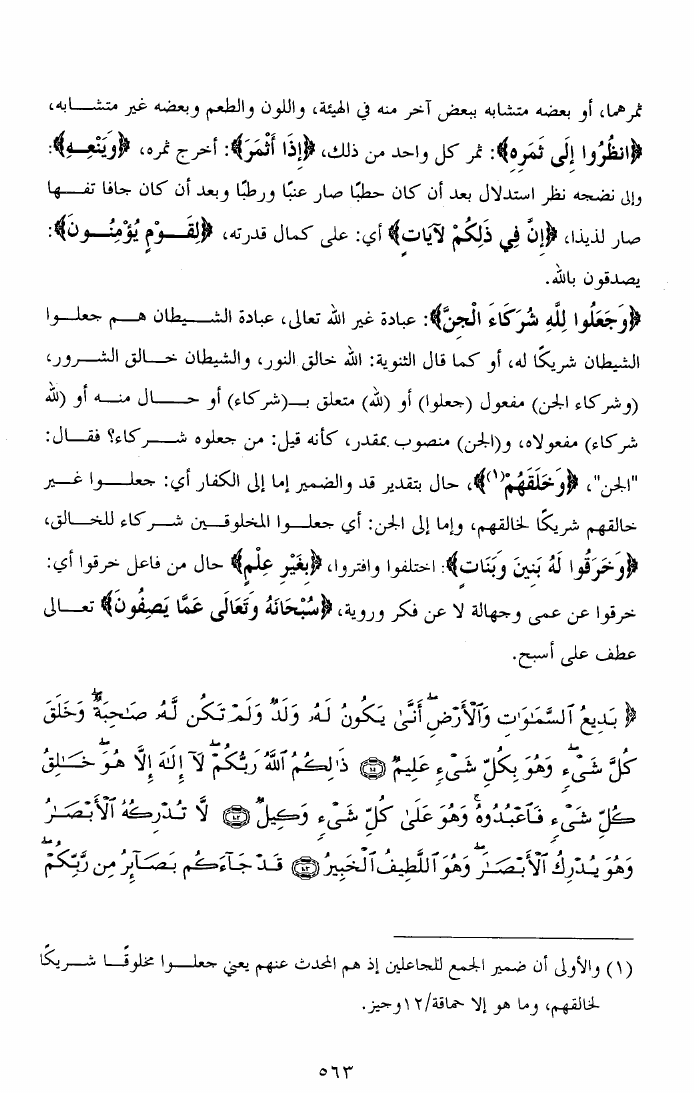 ثمرهما، أو بعضه متشابه ببعض آخر منه في الهيئة، واللون والطعم وبعضه غير متشـــابه،
﴿انظُرُوا إِلَى ثَمَرِهِ﴾: ثمر كل واحد من ذلك، ﴿إِذَا أَثْمَرَ﴾: أخرج ثمره، ﴿وَيَنْعِــهِ﴾:
وإلى نضجه نظر استدلال بعد أن كان حطبًا صار عنبًا ورطبًا وبعد أن كان جافا تفـــها
صار لذيذا، ﴿إِنَّ فِي ذَلِكُمْ لآيَاتٍ﴾ أي: على كمال قدرته، ﴿لِقَـــوْمٍ يُؤْمِنُـــونَ﴾:
يصدقون بالله.
﴿وَجَعَلُوا لِلَّهِ شُرَكَاءَ الْجِنَّ﴾: عبادة غير الله تعالى، عبادة الشـــيطان هـــم جعلـــوا
الشيطان شريكًا له، أو كما قال الثنوية: الله خالق النور، والشيطان خـــالق الشـــرور،
(وشركاء الجن) مفعول (جعلوا) أو (لله) متعلق بـــ(شركاء) أو حـــــال منـــه أو (لله
شركاء) مفعولاه، و(الجن) منصوب بمقدر، كأنه قيل: من جعلوه شـــركاء؟ فقـــال:
"الجن"، ﴿وَخَلَقَهُمْ(١)﴾، حال بتقدير قد والضمير إما إلى الكفار أي: جعلـــوا غـــير
خالقهم شريكًا لخالقهم، وإما إلى الجن: أي جعلـــوا المخلوقـــين شـــركاء للخـــالق،
﴿وَخَرَقُوا لَهُ بَنِينَ وَبَنَاتٍ﴾: اختلفوا وافتروا، ﴿بِغَيْرِ عِلْمٍ﴾ حال من فاعل خرقوا أي:
خرقوا عن عمى وجهالة لا عن فكر وروية، ﴿سُبْحَانَهُ وَتَعَالَى عَمَّا يَصِفُونَ﴾ تعـــالى
عطف على أسبح.
﴿ بَدِيعُ ٱلسَّمَـٰوَٰتِ وَٱلْأَرْضِۖ أَنَّىٰ يَكُونُ لَهُۥ وَلَدٌ وَلَمْ تَكُن لَّهُۥ صَـٰحِبَةٌۖ وَخَلَقَ
كُلَّ شَىْءٍۖ وَهُوَ بِكُلِّ شَىْءٍ عَلِيمٌ ۝١٠١ ذَٰلِكُمُ ٱللَّهُ رَبُّكُمْۖ لَآ إِلَـٰهَ إِلَّا هُوَۖ خَـٰلِقُ
كُلِّ شَىْءٍ فَٱعْبُدُوهُۚ وَهُوَ عَلَىٰ كُلِّ شَىْءٍ وَكِيلٌ ۝١٠٢ لَّا تُدْرِكُهُ ٱلْأَبْصَـٰرُ
وَهُوَ يُدْرِكُ ٱلْأَبْصَـٰرَۖ وَهُوَ ٱللَّطِيفُ ٱلْخَبِيرُ ۝١٠٣ قَدْ جَآءَكُم بَصَآئِرُ مِن رَّبِّكُمْۖ
(١) والأولى أن ضمير الجمع للجاعلين إذ هم المحدث عنهم يعني جعلـــوا مخلوقًـــا شـــريكًا
لخالقهم، وما هو إلا حماقة/١٢وجيز.
٥٦٣